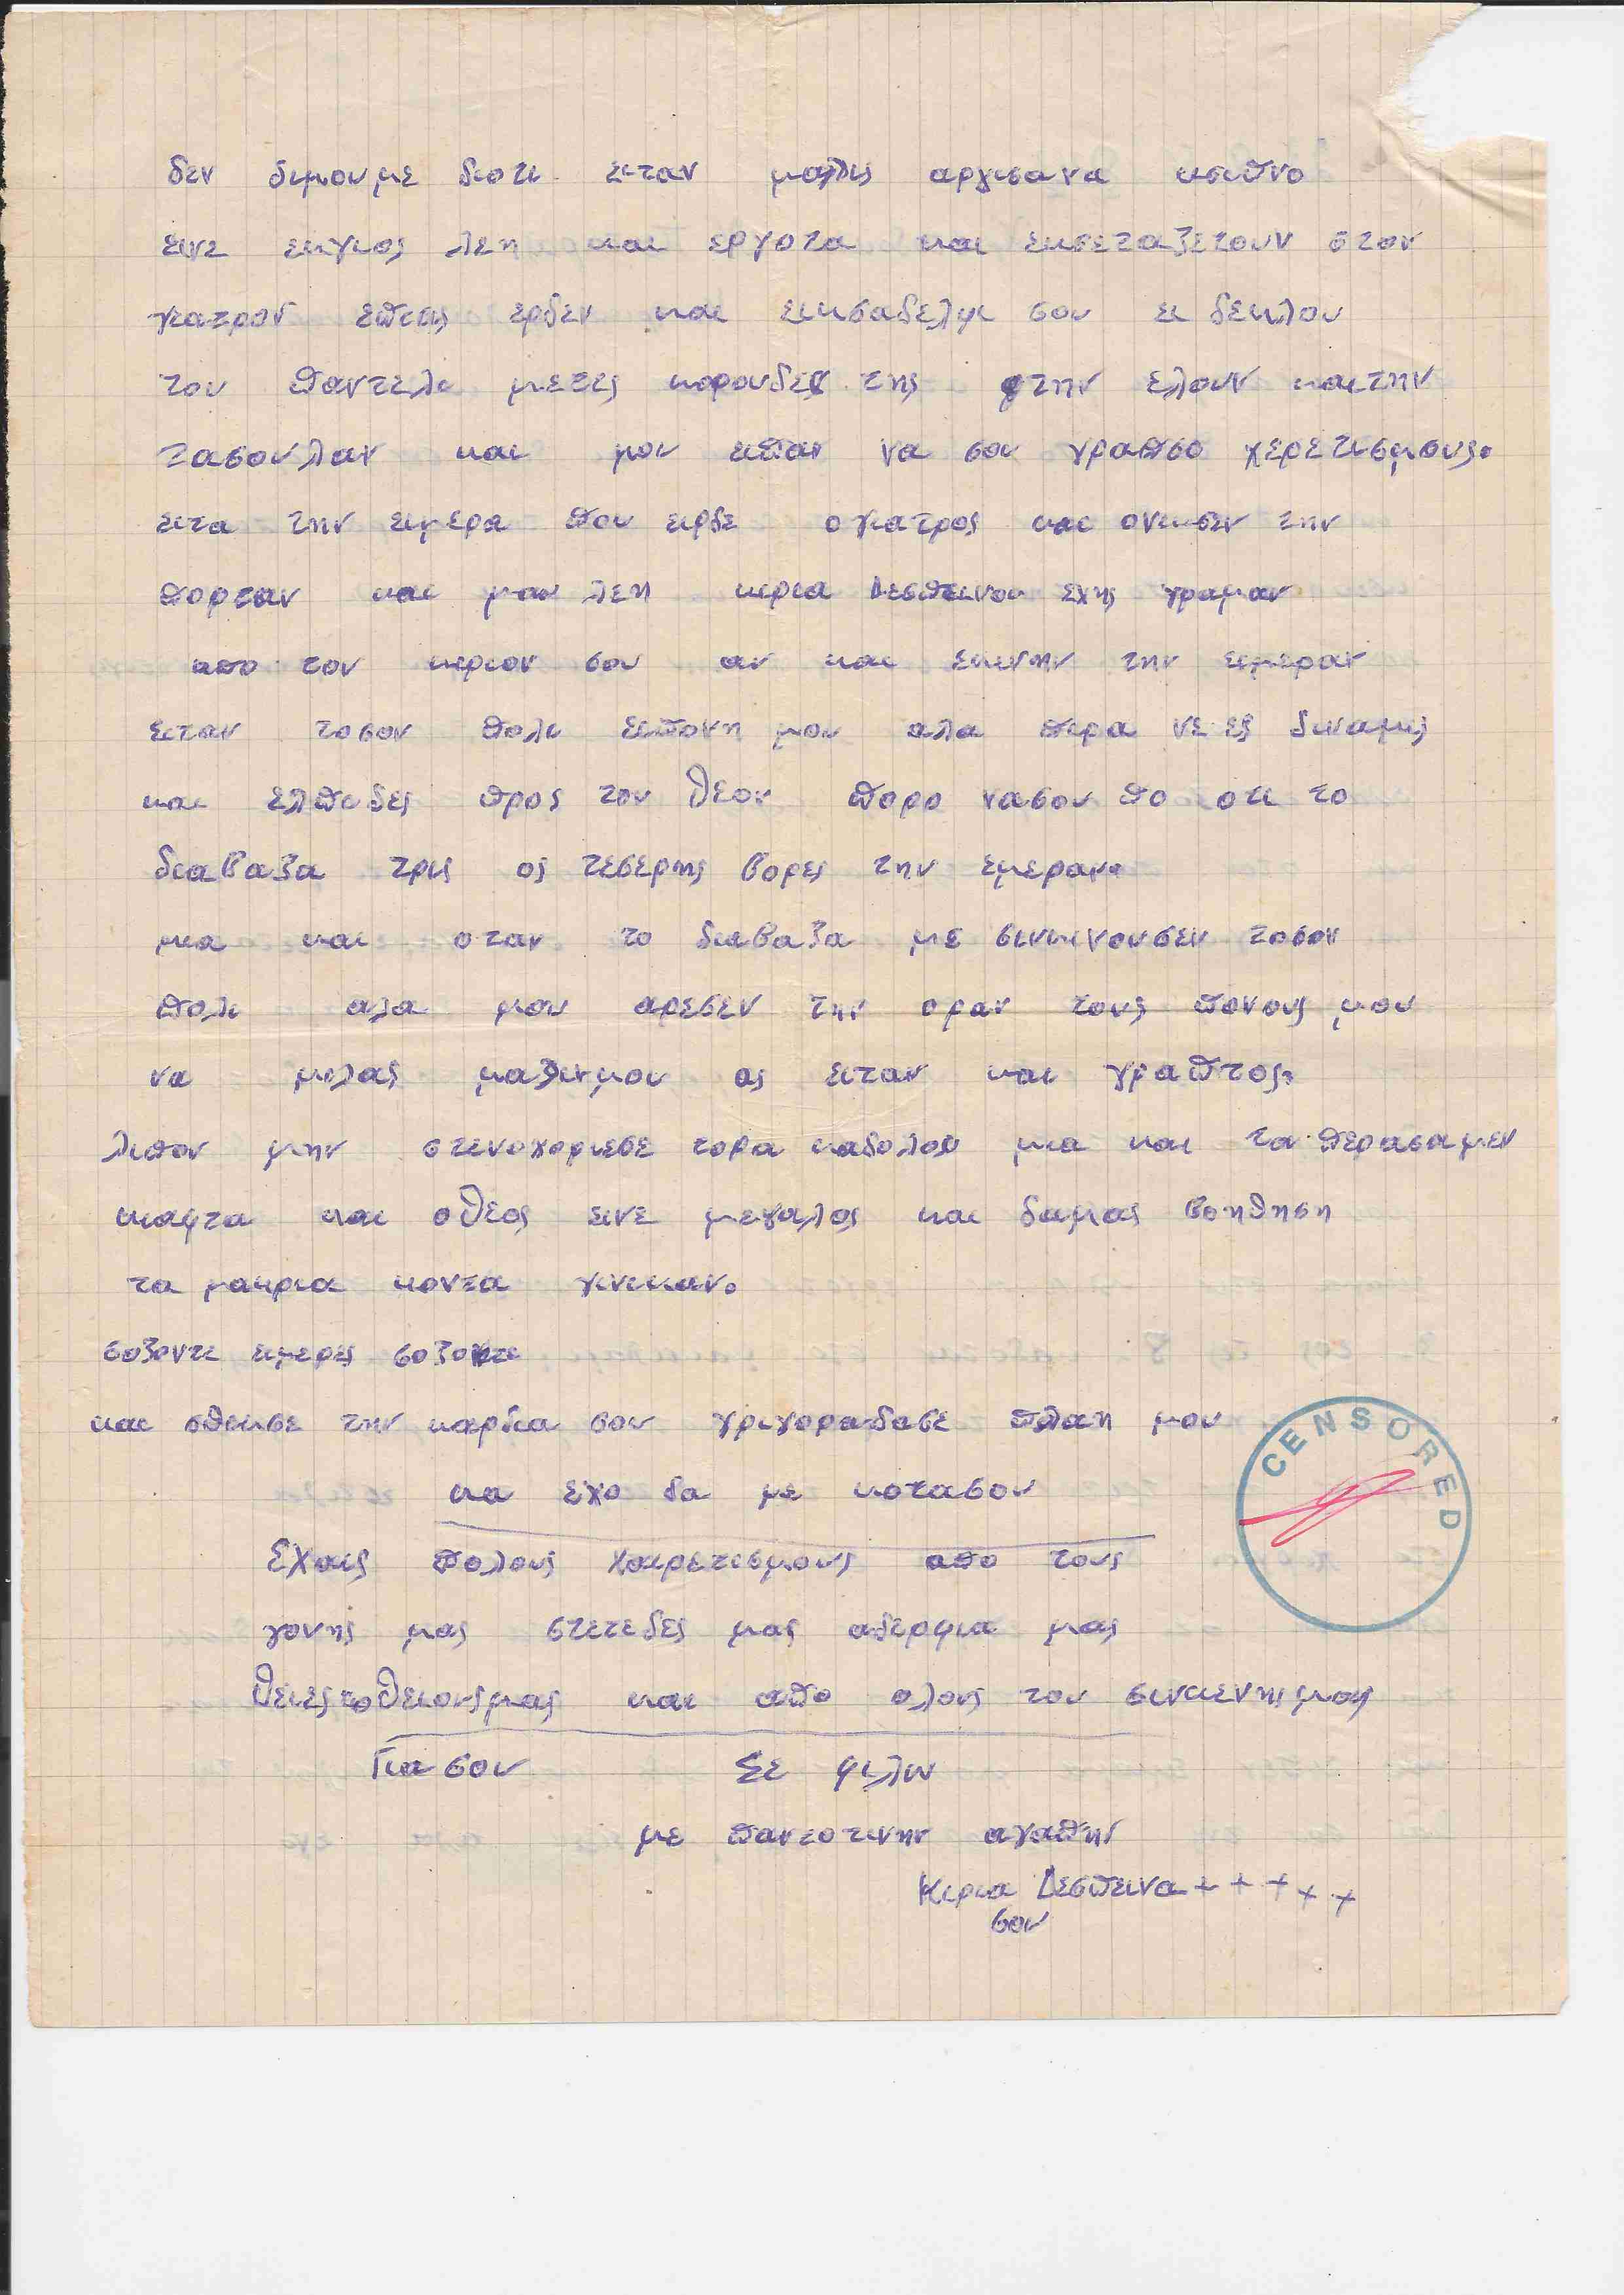 δεν διμουμε διοτι ειταν μολις αργισα να κσιπνο
εινε εκγιος λεη και εργοτα και εκσεταζετουν στον
γιατρον επισις ερδεν και εικσαδελφι σου ει δεκλου
του παντελι με τες κορουδες της στην ελουν και την
τασουλαν και μου ειπαν να σου γραπσο χερετισμους.
ειτα την ειμερα που ειρδε ο γιατρος και ονικσεν την
πορταν και μου λεη κιρια Δεσπεινου εχης γραμαν
απο τον κιριον σου αν και εκινην την ειμεραν
ειταν τοσον πολι ει πονη μου αλα πιρα νεες διναμις
και ελπιδες προς τον θεον πορο να σου πο οτι το
διαβαζα τρις ος τεσερης βορες την εμεραν.
μια και οταν το διαβαζα με σινκινουσεν τοσον
πολι αλα μου αρεσεν την οραν τους πονους μου
να μιλας μαζιν μου ας ειταν και γραπτος.
λιπον μην στενοχοριεσε τορα καδολου μια και τα περασαμεν
καφτα και ο θεος εινε μεγαλος και δα μας βοηθηση
τα μακρια κοντα γινικαν.
σοζοντε ειμερες σοζοντε
και σπικσε την καρδια σου γριγορα δα σε πλαη μου
κα εχο δα με κοτασου
Εχαις πολους χαιρετισμους απο τους
γονης μας στετεδες μας αδερφια μας
θειες κο θειους μας και απο ολους του σινκενης μου
Για σου Σε φιλω
με παντοτινην αγαπην
Κιρια Δεσπεινα + + + + +
σου
CENSORED